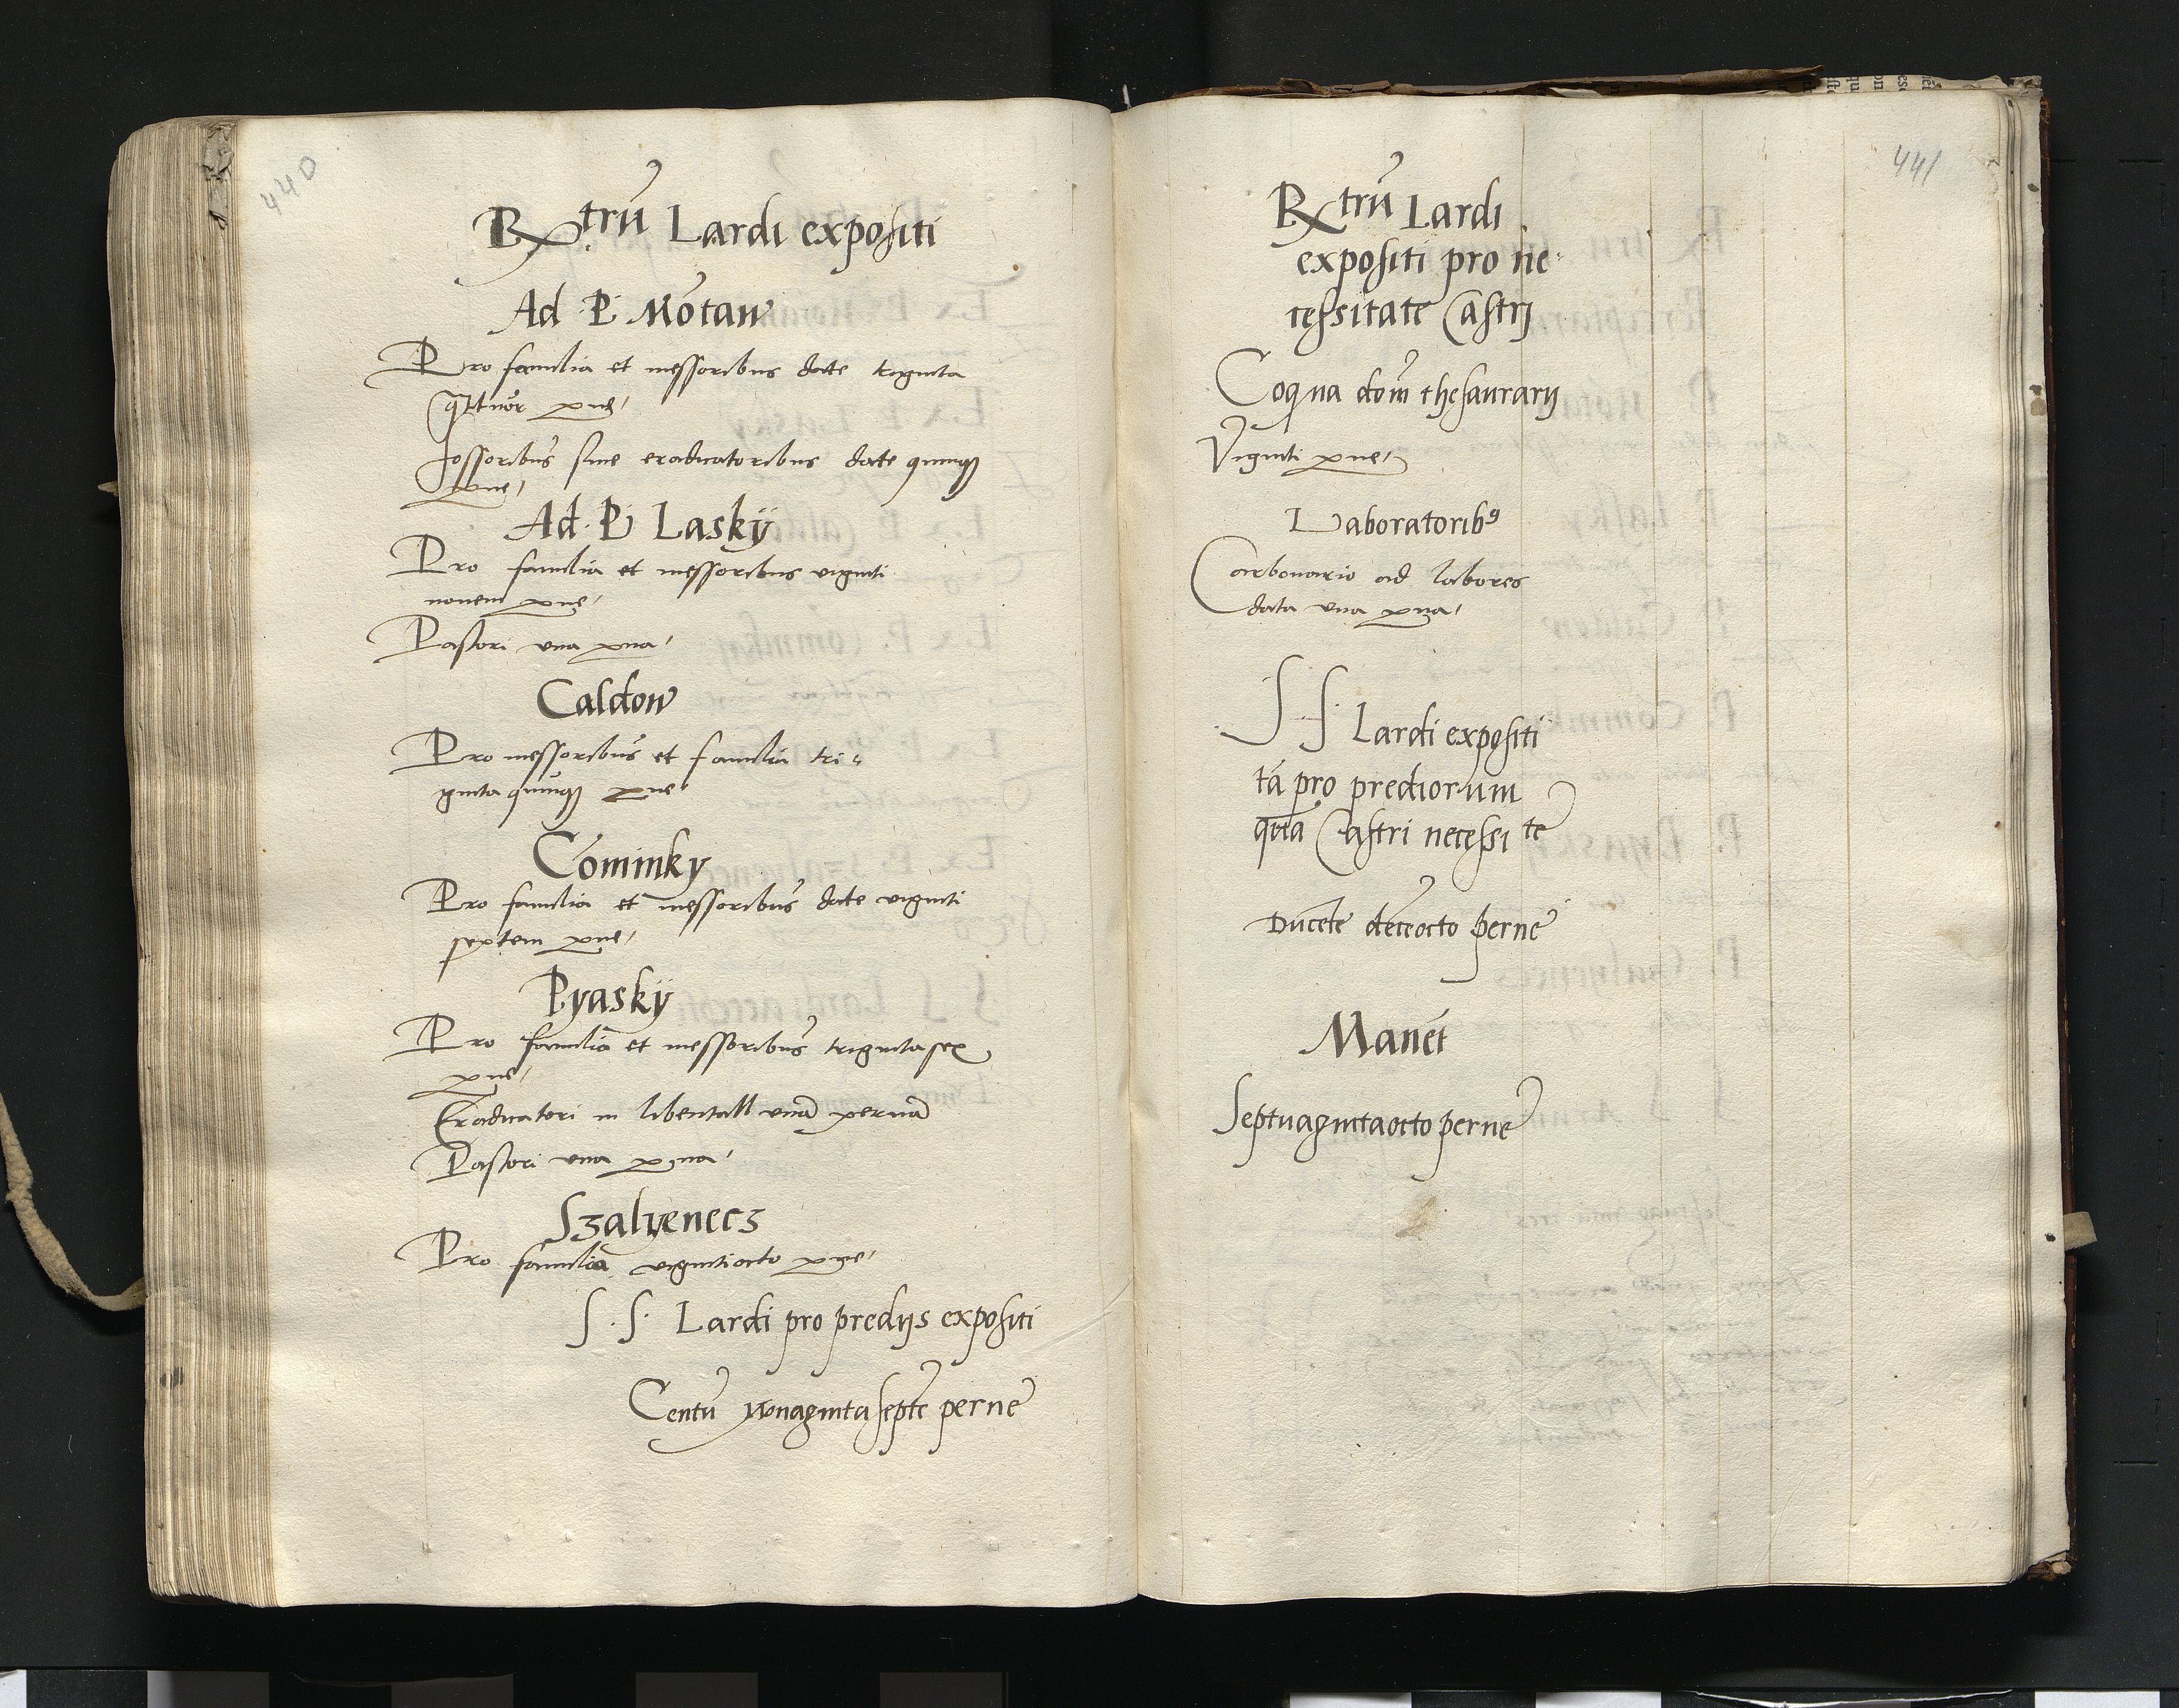 440
Rxtrū Lardi expositi
Ad P. Mōtaw
Pro familia et messoribus date triginta
q̄ttuor pne
fossoribus sive eradicatoribus date quinq3
pne
Ad P. Laskÿ
Pro familia et messoribus viginti
novem pne
Pastori una pna
Caldow
Pro messoribus et familia tri-
ginta quinq3 pne
Cominky
Pro familia et messoribus date viginti
septem pne
Pyaskÿ
Pro familia et messoribus trigintasex
pne
Eradicatori in libentall unā pernā
Pastori una pna
Szalyenecz
Pro familia vigintiocto pne
S. S. Lardi pro predijs expositi
Centū nonagintaseptē perne
441
Rxtrū Lardi
expositi pro ne-
cessitate Castrj
Coqna dom̄ thesaurarij
Viginti pne
Laboratorib9
Carbonario ad labores
data una pna
S S. Lardi expositi
tā pro prediorum
q̄ta Castri necessi te
Ducēte dēceocto perne
Manēt
Septuagintaocto perne